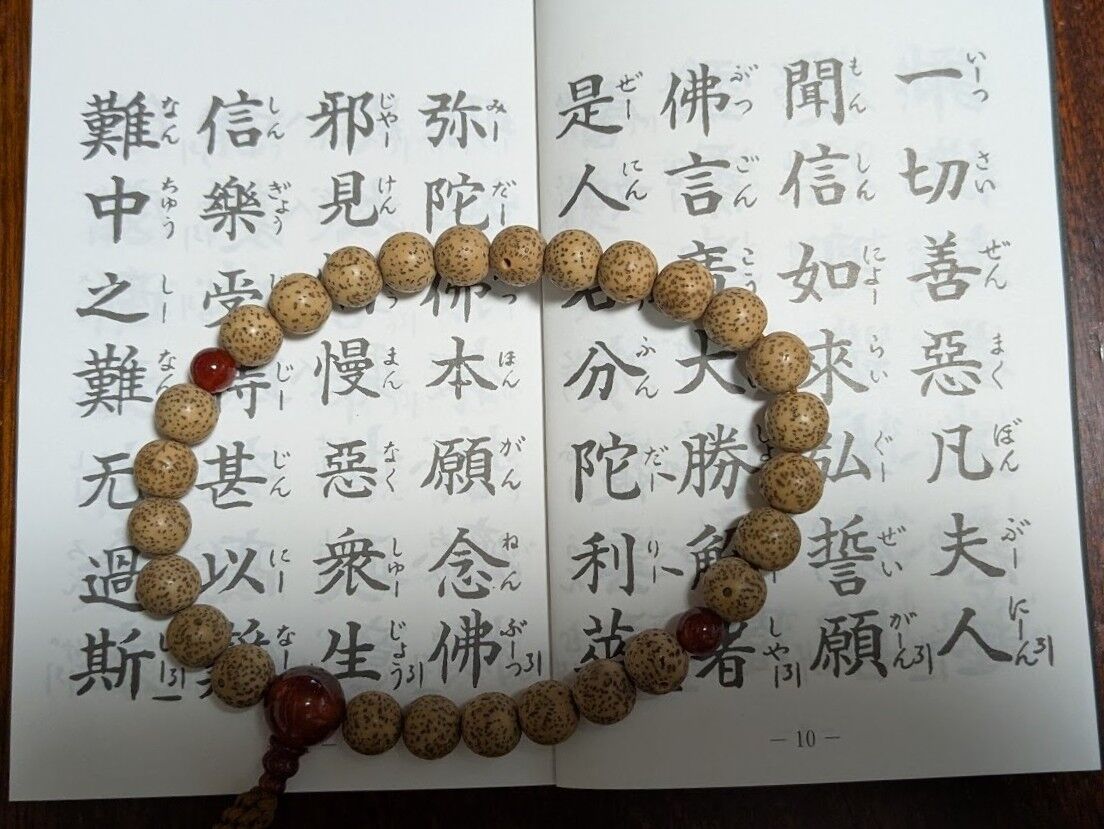 一切善惡凡夫人
いーっさいぜんまくぼんぶーにーん引
聞信如來弘誓願
もんしんにょーらいぐーぜいがーん引
佛言廣大勝解者
ぶつごんこうしゃー引
是人名分陀利華
ぜーにんふんだーりー
弥陀佛本願念佛
みーだーほんがんねんぶーつ引
邪見慢惡衆生
じゃーけんまんなくしゅーじょう引
信樂受持甚以難
しんぎょうじーじんにーなー
難中之難无過斯
なんちゅうしーなんしー引
— 10 —